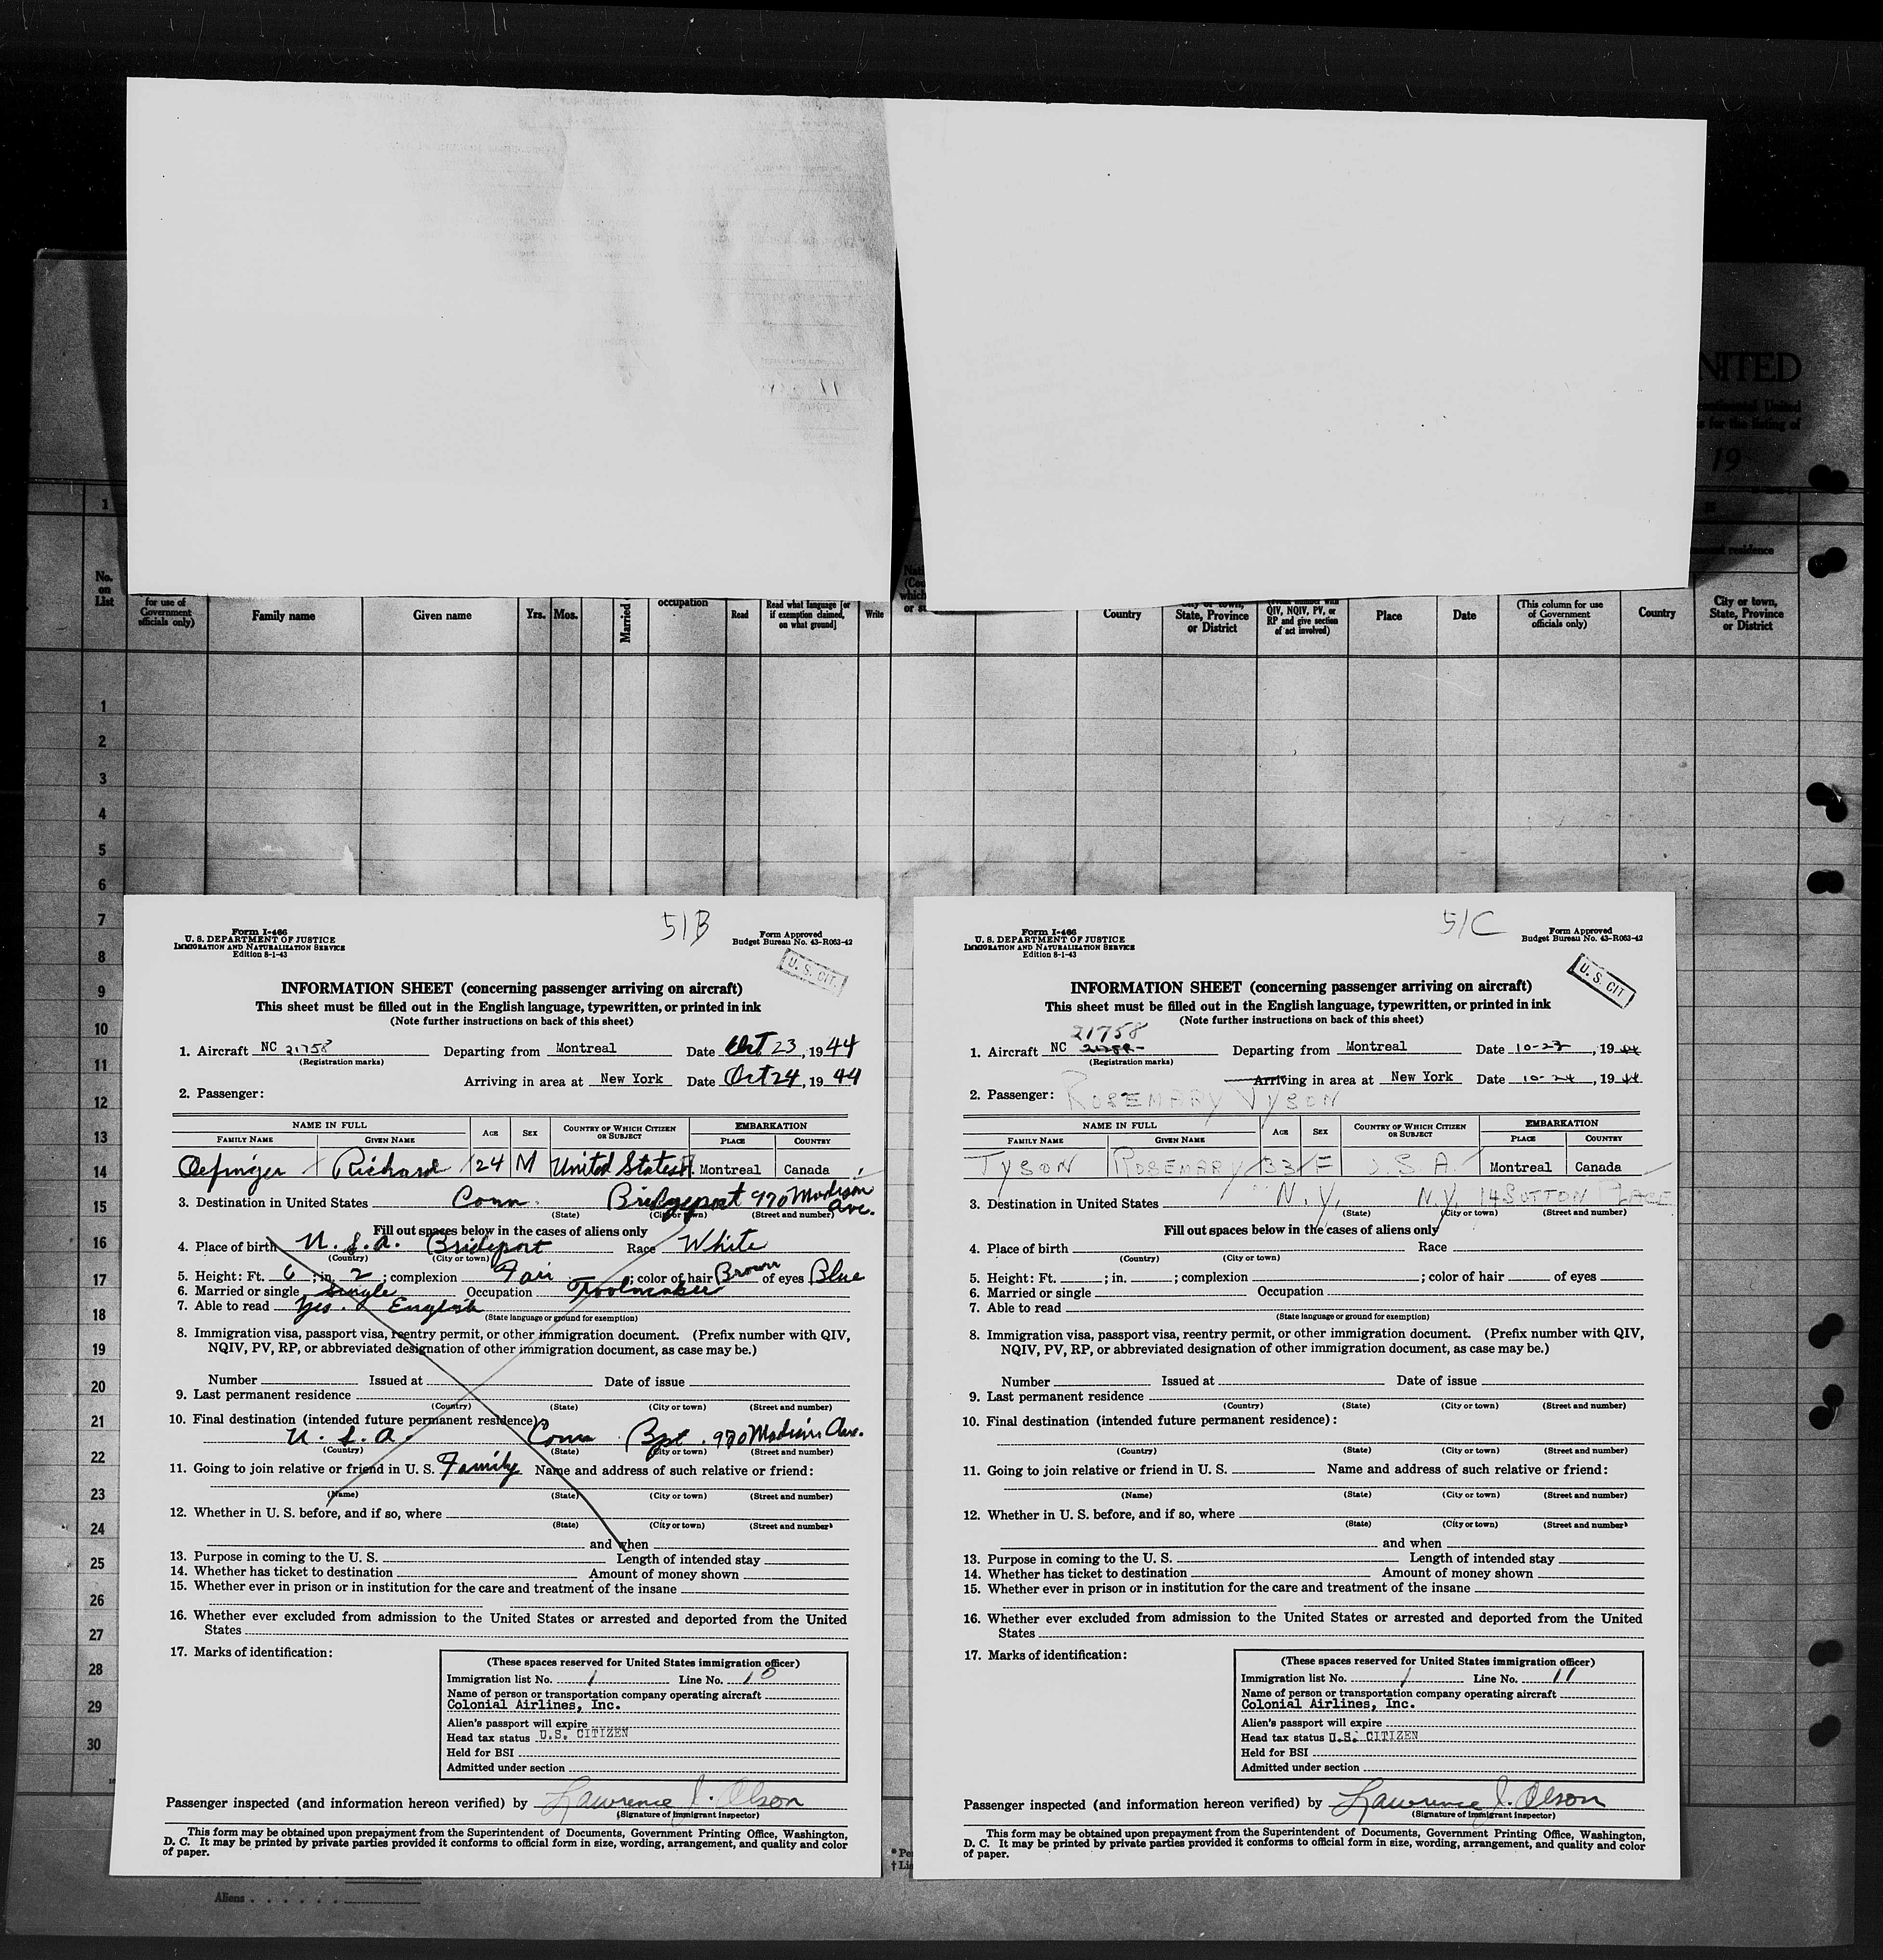 NITED
continental United
s for the listing of
19
1
residence
No.
on
List
for use of
Government
officials only)
Family name
Given name
Yrs.
Mos.
Married
occupation
Read
Read what language [or
if exemption claimed,
on what ground]
Write
Country
City or town,
State, Province
or District
QIV, NQIV, PV, or
RP and give section
of act involved)
Place
Date
(This column for use
of Government
officials only)
Country
City or town,
State, Province
or District
1
2
3
4
5
6
7
8
9
10
11
12
13
14
15
16
17
18
19
20
21
22
23
24
25
26
27
28
29
30
Aliens
51B
Form I-466
U. S. DEPARTMENT OF JUSTICE
IMMIGRATION AND NATURALIZATION SERVICE
Edition 8-1-43
Form Approved
Budget Bureau No. 43-R063-42
U. S. CIT.
INFORMATION SHEET (concerning passenger arriving on aircraft)
This sheet must be filled out in the English language, typewritten, or printed in ink
(Note further instructions on back of this sheet)
1. Aircraft NC 21758 Departing from Montreal Date Oct 23, 1944
(Registration marks)
Arriving in area at New York Date Oct 24, 1944
2. Passenger:
NAME IN FULL AGE SEX COUNTRY OF WHICH CITIZEN OR SUBJECT EMBARKATION
FAMILY NAME GIVEN NAME PLACE COUNTRY
Oefinger Richard 24 M United States Montreal Canada
3. Destination in United States Conn. Bridgeport 970 Madison Ave.
(State) (City or town) (Street and number)
Fill out spaces below in the cases of aliens only
4. Place of birth U. S. A. Brideport Race White
(Country) (City or town)
5. Height: Ft. 6; in. 2; complexion Fair; color of hair Brown of eyes Blue
6. Married or single Single Occupation Toolmaker
7. Able to read Yes. English
(State language or ground for exemption)
8. Immigration visa, passport visa, reentry permit, or other immigration document. (Prefix number with QIV,
NQIV, PV, RP, or abbreviated designation of other immigration document, as case may be.)
Number Issued at Date of issue
9. Last permanent residence
(Country) (State) (City or town) (Street and number)
10. Final destination (intended future permanent residence):
U. S. A. Conn Bpt. 970 Madison Ave.
(Country) (State) (City or town) (Street and number)
11. Going to join relative or friend in U. S. Family Name and address of such relative or friend:
(Name) (State) (City or town) (Street and number)
12. Whether in U. S. before, and if so, where
(State) (City or town) (Street and number)
and when
13. Purpose in coming to the U. S. Length of intended stay
14. Whether has ticket to destination Amount of money shown
15. Whether ever in prison or in institution for the care and treatment of the insane
16. Whether ever excluded from admission to the United States or arrested and deported from the United
States
17. Marks of identification:
(These spaces reserved for United States immigration officer)
Immigration list No. 1 Line No. 10
Name of person or transportation company operating aircraft
Colonial Airlines, Inc.
Alien's passport will expire
Head tax status U.S. CITIZEN
Held for BSI
Admitted under section
Passenger inspected (and information hereon verified) by Lawrence J. Olson
(Signature of immigrant inspector)
This form may be obtained upon prepayment from the Superintendent of Documents, Government Printing Office, Washington,
D. C. It may be printed by private parties provided it conforms to official form in size, wording, arrangement, and quality and color
of paper.
51C
Form I-466
U. S. DEPARTMENT OF JUSTICE
IMMIGRATION AND NATURALIZATION SERVICE
Edition 8-1-43
Form Approved
Budget Bureau No. 43-R063-42
U. S. CIT
INFORMATION SHEET (concerning passenger arriving on aircraft)
This sheet must be filled out in the English language, typewritten, or printed in ink
(Note further instructions on back of this sheet)
21758
1. Aircraft NC Departing from Montreal Date 10-23, 1944
(Registration marks)
Arriving in area at New York Date 10-24, 1944
2. Passenger: ROSEMARY TYSON
NAME IN FULL AGE SEX COUNTRY OF WHICH CITIZEN OR SUBJECT EMBARKATION
FAMILY NAME GIVEN NAME PLACE COUNTRY
TYSON ROSEMARY 33 F U.S.A. Montreal Canada
3. Destination in United States N.Y. N.Y. 14 SUTTON PLACE
(State) (City or town) (Street and number)
Fill out spaces below in the cases of aliens only
4. Place of birth Race
(Country) (City or town)
5. Height: Ft. ; in. ; complexion ; color of hair of eyes
6. Married or single Occupation
7. Able to read
(State language or ground for exemption)
8. Immigration visa, passport visa, reentry permit, or other immigration document. (Prefix number with QIV,
NQIV, PV, RP, or abbreviated designation of other immigration document, as case may be.)
Number Issued at Date of issue
9. Last permanent residence
(Country) (State) (City or town) (Street and number)
10. Final destination (intended future permanent residence):
(Country) (State) (City or town) (Street and number)
11. Going to join relative or friend in U. S. Name and address of such relative or friend:
(Name) (State) (City or town) (Street and number)
12. Whether in U. S. before, and if so, where
(State) (City or town) (Street and number)
and when
13. Purpose in coming to the U. S. Length of intended stay
14. Whether has ticket to destination Amount of money shown
15. Whether ever in prison or in institution for the care and treatment of the insane
16. Whether ever excluded from admission to the United States or arrested and deported from the United
States
17. Marks of identification:
(These spaces reserved for United States immigration officer)
Immigration list No. 1 Line No. 11
Name of person or transportation company operating aircraft
Colonial Airlines, Inc.
Alien's passport will expire
Head tax status U.S. CITIZEN
Held for BSI
Admitted under section
Passenger inspected (and information hereon verified) by Lawrence J. Olson
(Signature of immigrant inspector)
This form may be obtained upon prepayment from the Superintendent of Documents, Government Printing Office, Washington,
D. C. It may be printed by private parties provided it conforms to official form in size, wording, arrangement, and quality and color
of paper.